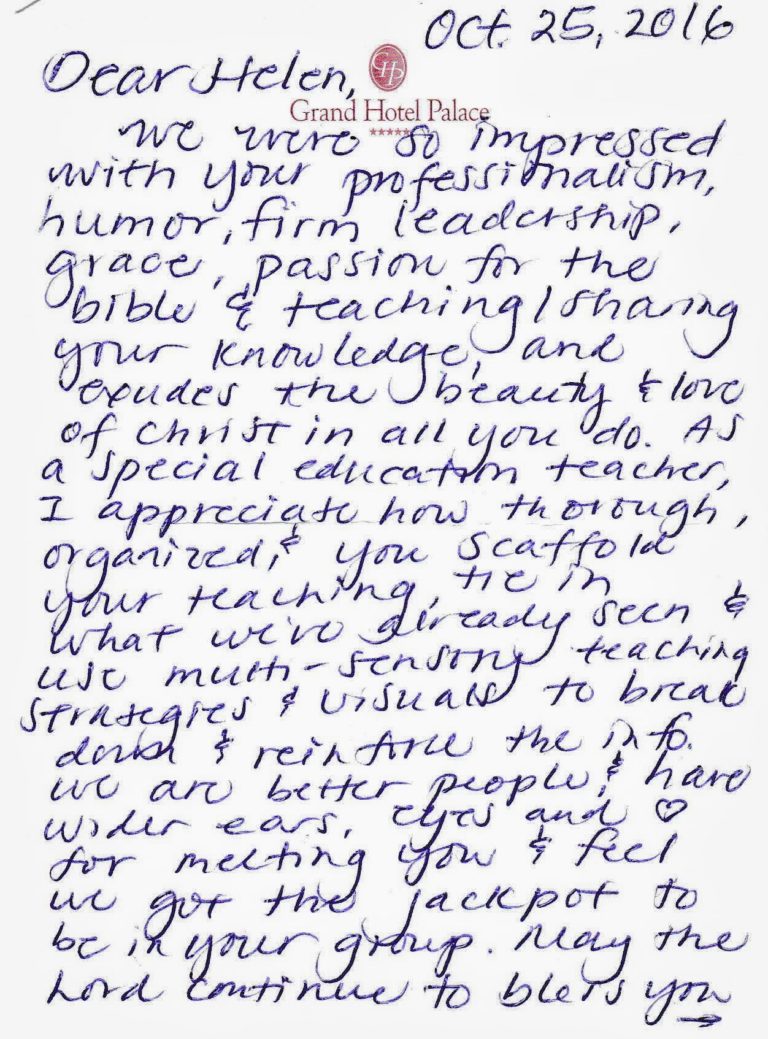 Oct. 25, 2016
Dear Helen,
GHP
Grand Hotel Palace
★★★★★
We were so impressed
with your professionalism,
humor, firm leadership,
grace, passion for the
bible & teaching/sharing
your knowledge, and
exudes the beauty & love
of Christ in all you do. As
a special education teacher,
I appreciate how thorough,
organized, & you scaffold
your teaching, tie in
what we've already seen &
use multi-sensory teaching
strategies & visuals to break
down & reinforce the info.
We are better people, & have
wider ears, eyes and ♡
for meeting you & feel
we got the jackpot to
be in your group. May the
Lord continue to bless you
→